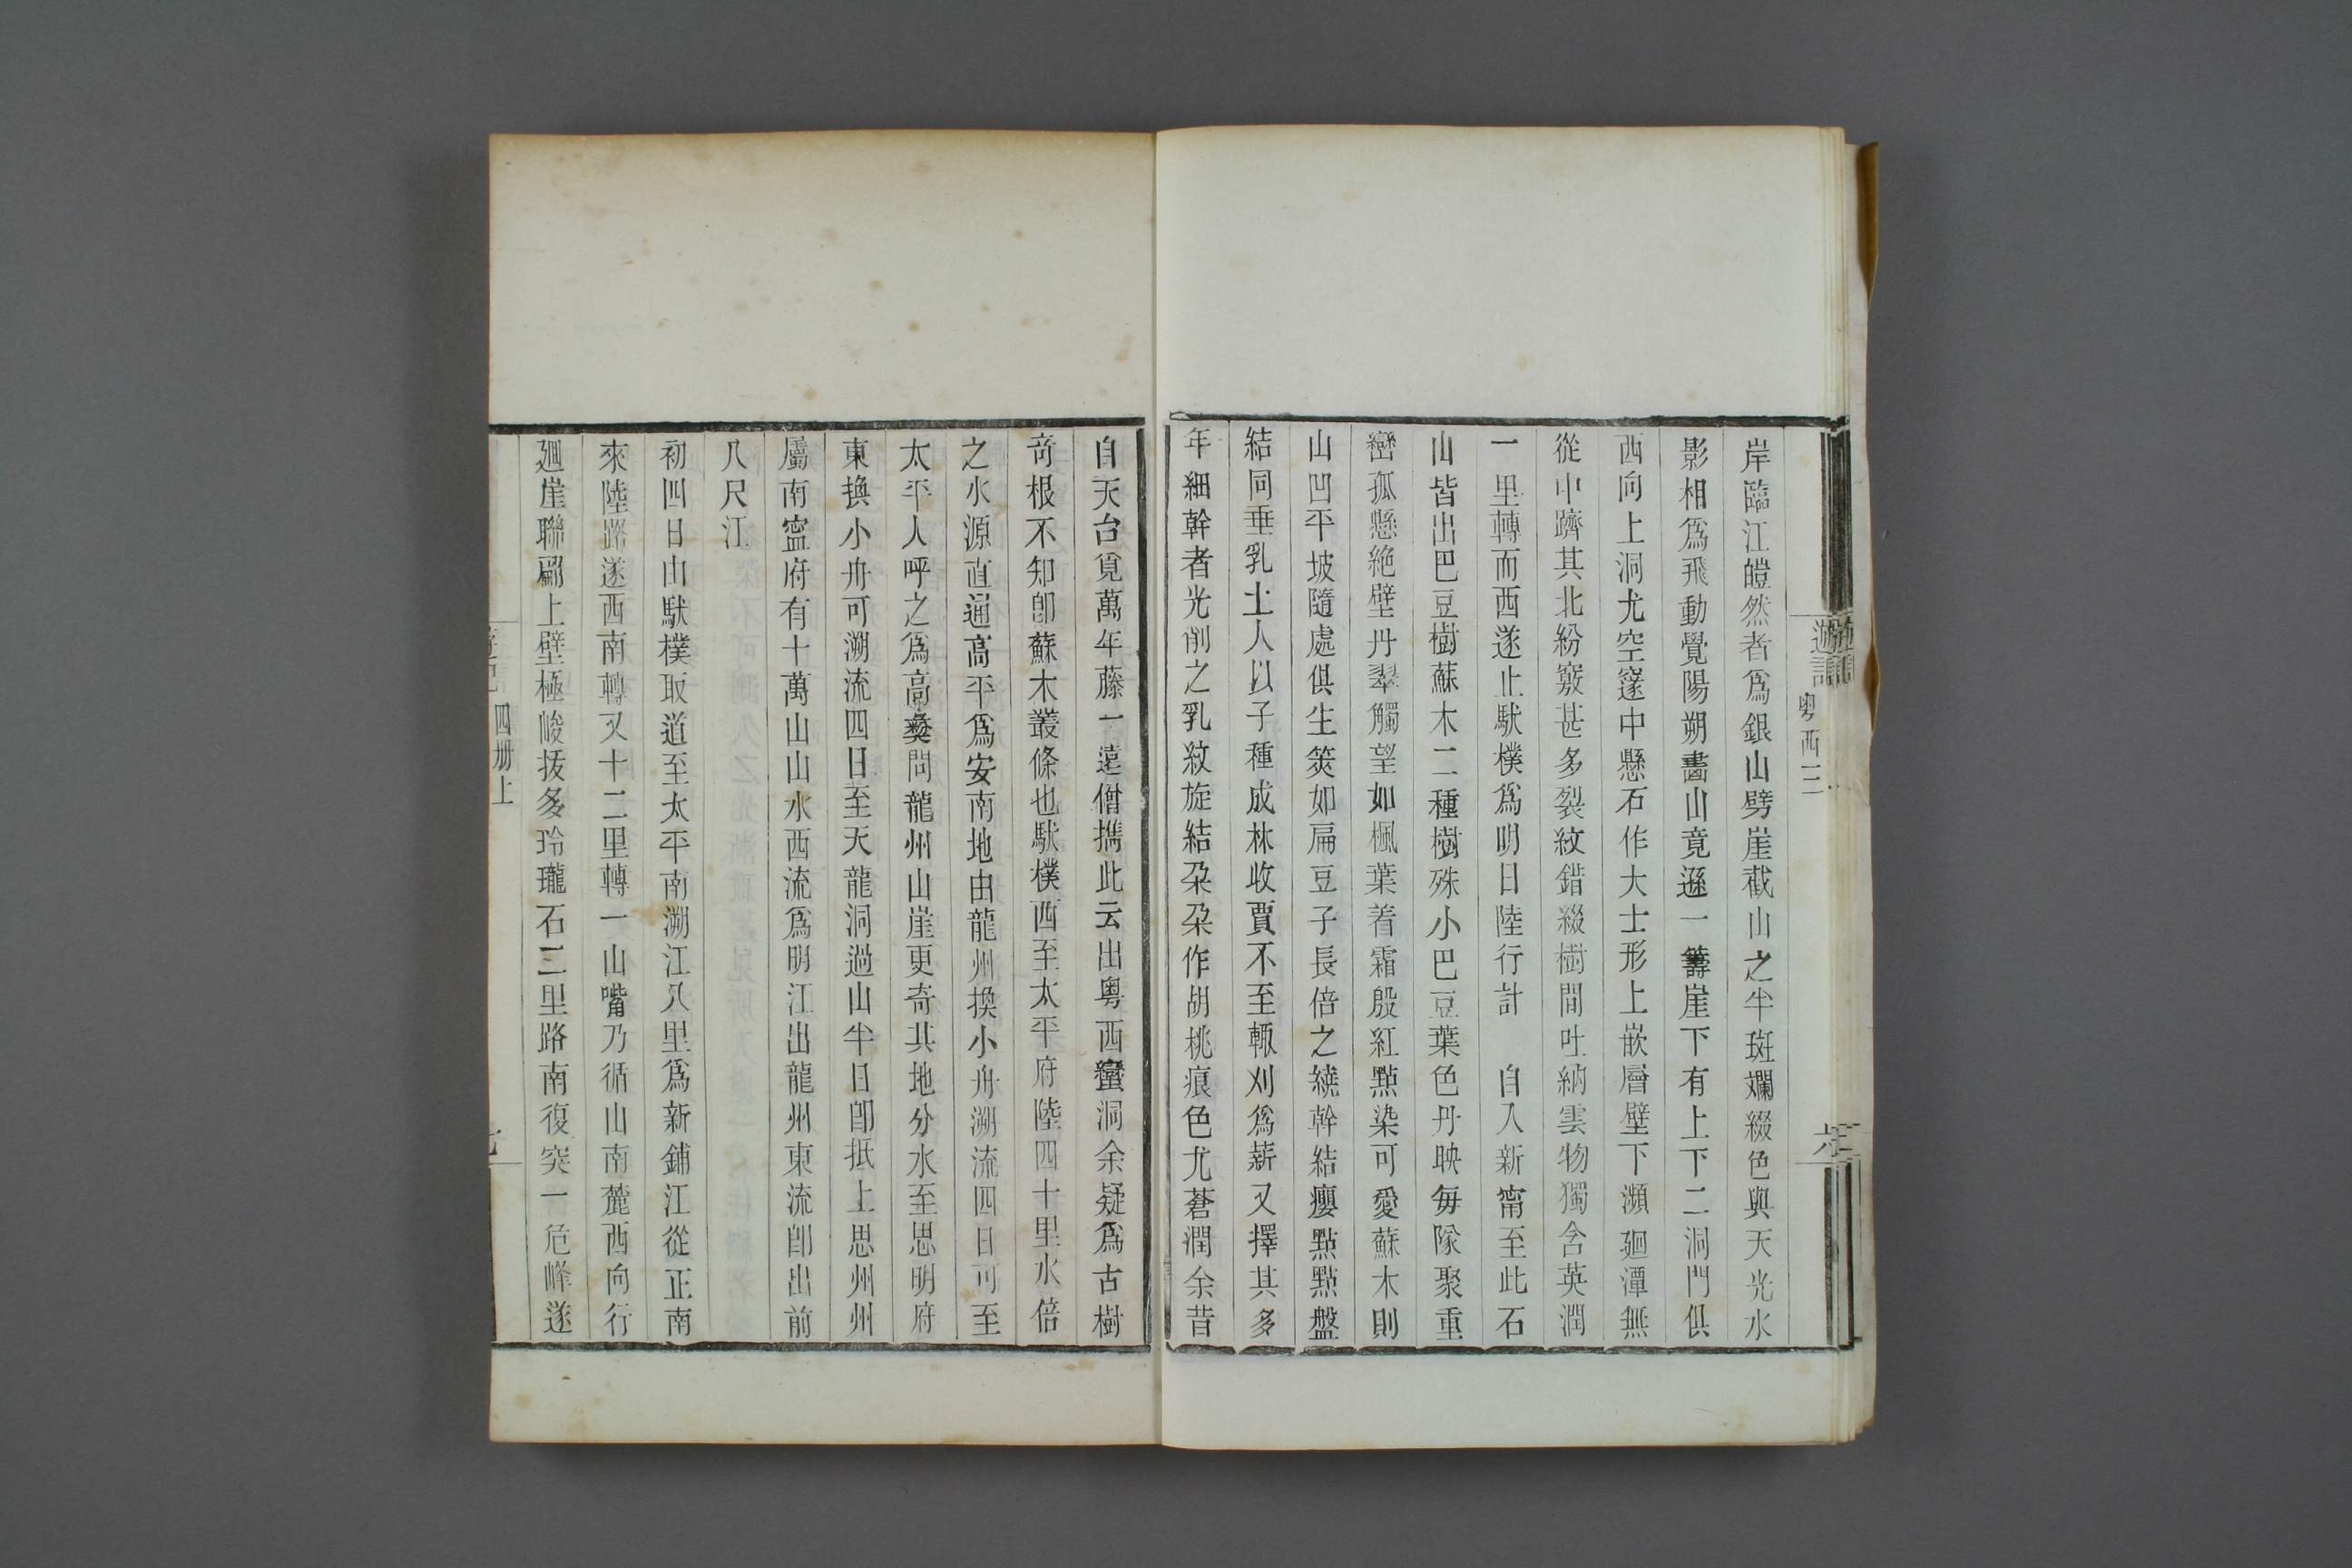 粵西三
岸臨江皚然者爲銀山劈崖截山之半斑斕綴色與天光水
影相爲飛動覺陽朔畵山竟遜一籌崖下有上下二洞門俱
西向上洞尤空邃中懸石作大士形上嵌層壁下瀕廻潭無
從中躋其北紛竅甚多裂紋錯綴樹間吐納雲物獨含英潤
一里轉而西遂止馱樸爲明日陸行計　自入新甯至此石
山皆出巴豆樹蘇木二種樹殊小巴豆葉色丹映每隊聚重
巒孤懸絶壁丹翠觸望如楓葉着霜殷紅點染可愛蘇木則
山凹平坡隨處俱生筴如扁豆子長倍之繞幹結癭點點盤
結同垂乳土人以子種成林收賈不至輙刈爲薪又擇其多
年細幹者光削之乳紋旋結朶朶作胡桃痕色尤蒼潤余昔
自天台覓萬年藤一遠僧擕此云出粤西蠻洞余疑爲古樹
奇根不知卽蘇木叢條也馱樸西至太平府陸四十里水倍
之水源直通高平爲安南地由龍州換小舟溯流四日可至
太平人呼之爲高彝問龍州山崖更奇其地分水至思明府
東換小舟可溯流四日至天龍洞過山半日卽抵上思州州
屬南寍府有十萬山山水西流爲明江出龍州東流卽出前
八尺江
初四日由馱樸取道至太平南溯江八里爲新鋪江從正南
來陸路遂西南轉又十二里轉一山嘴乃循山南麓西向行
廻崖聯罽上壁極峻拔多玲瓏石三里路南復突一危峰遂
四册上